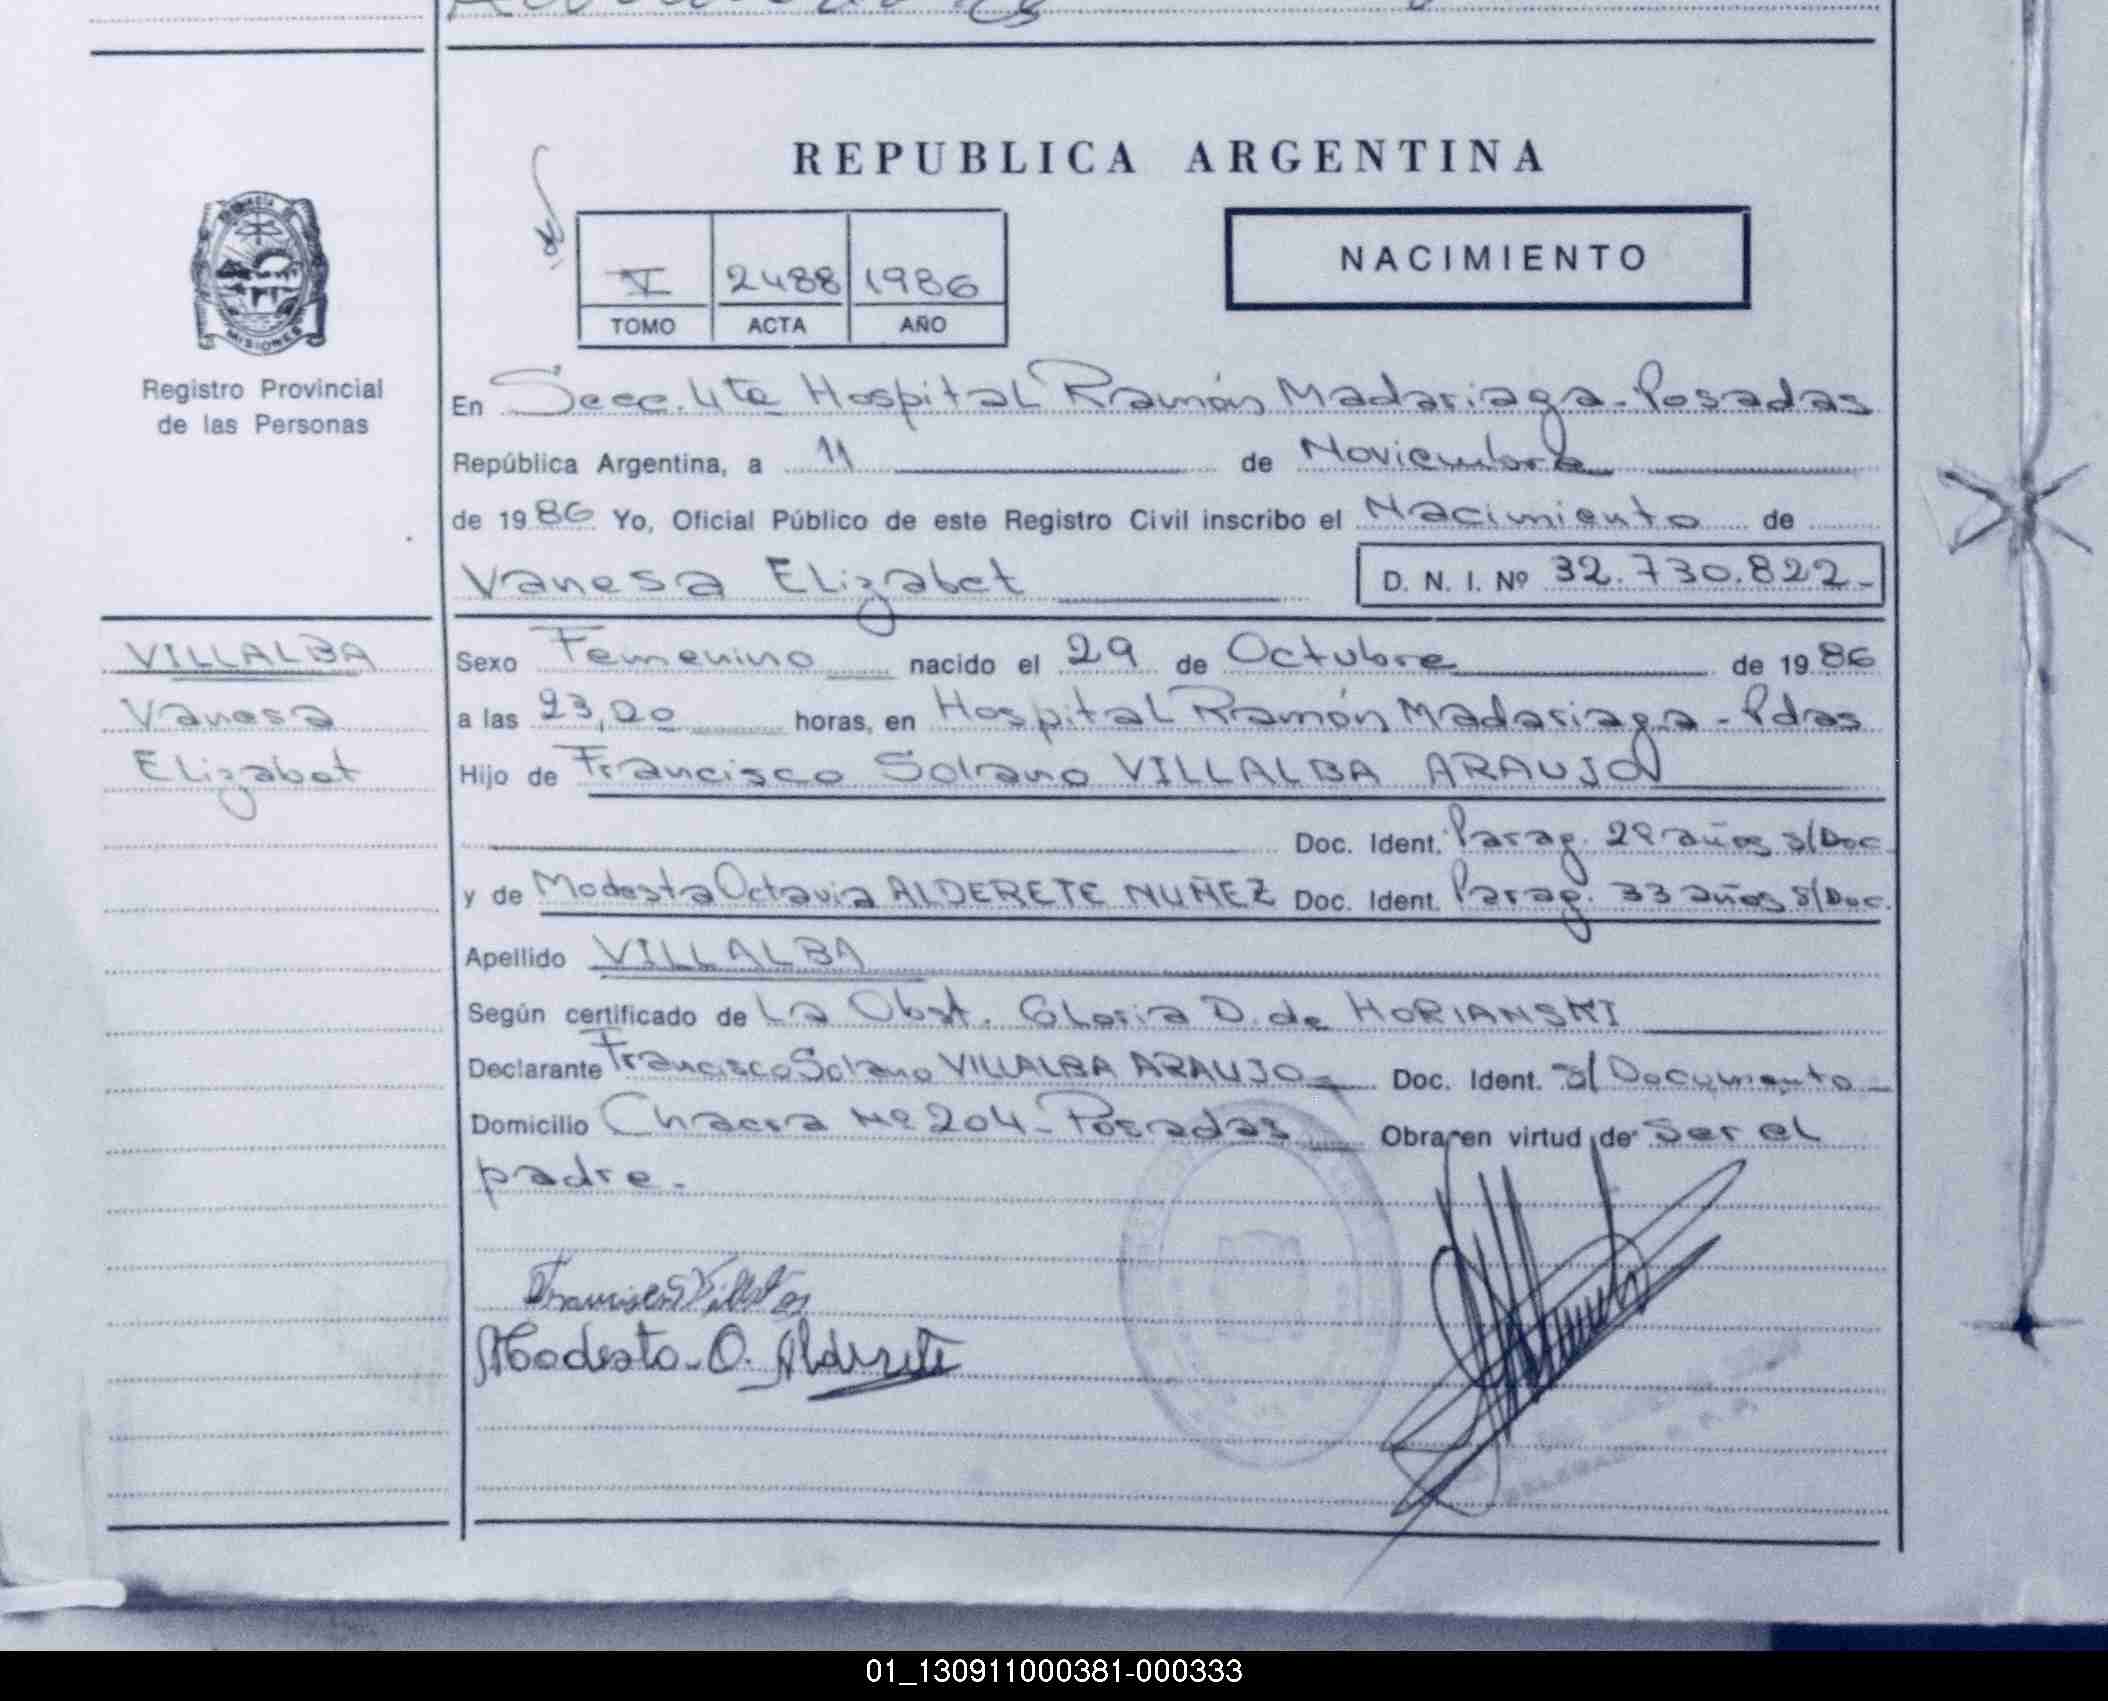 REPUBLICA ARGENTINA
NACIMIENTO
V 2488 1986
TOMO ACTA AÑO
MISIONES
Registro Provincial
de las Personas
En Secc. 4ta Hospital Ramón Madariaga - Posadas
República Argentina, a 11 de Noviembre
de 1986 Yo, Oficial Público de este Registro Civil inscribo el Nacimiento de
Vanesa Elizabet D. N. I. Nº 32.730.822-
VILLALBA
Vanesa
Elizabet
Sexo Femenino nacido el 29 de Octubre de 1986
a las 23,20 horas, en Hospital Ramón Madariaga - Pdas
Hijo de Francisco Solano VILLALBA ARAUJO
Doc. Ident. Parag. 29 años s/Doc.
y de Modesta Octavia ALDERETE NUÑEZ Doc. Ident. Parag. 33 años s/Doc.
Apellido VILLALBA
Según certificado de La Obst. Gloria D. de HORIANSKI
Declarante Francisco Solano VILLALBA ARAUJO Doc. Ident. s/Documento
Domicilio Chacra Nº 204 - Posadas Obra en virtud de Ser el
padre.
Modesta O. Alderete
01_130911000381-000333